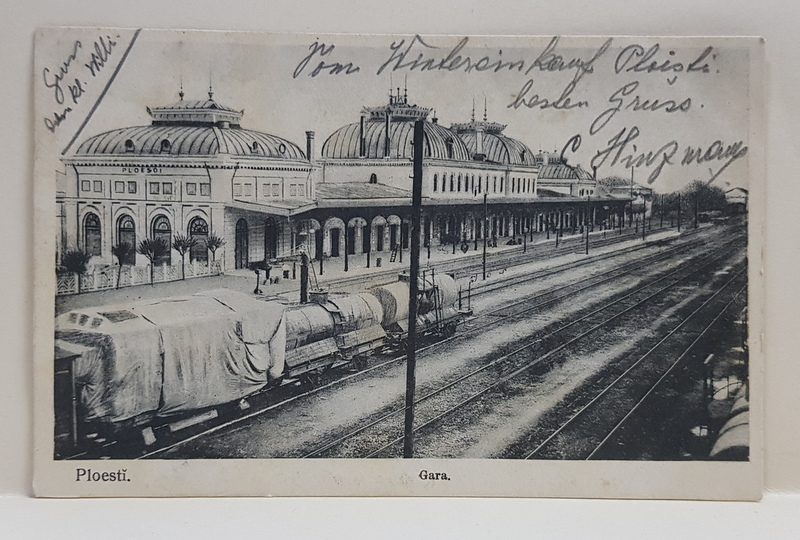 Gruss
kl. Willi
Vom Wintereinkauf Ploesti.
besten Gruss.
C Hinzmann
PLOESCI
Ploestĭ.
Gara.